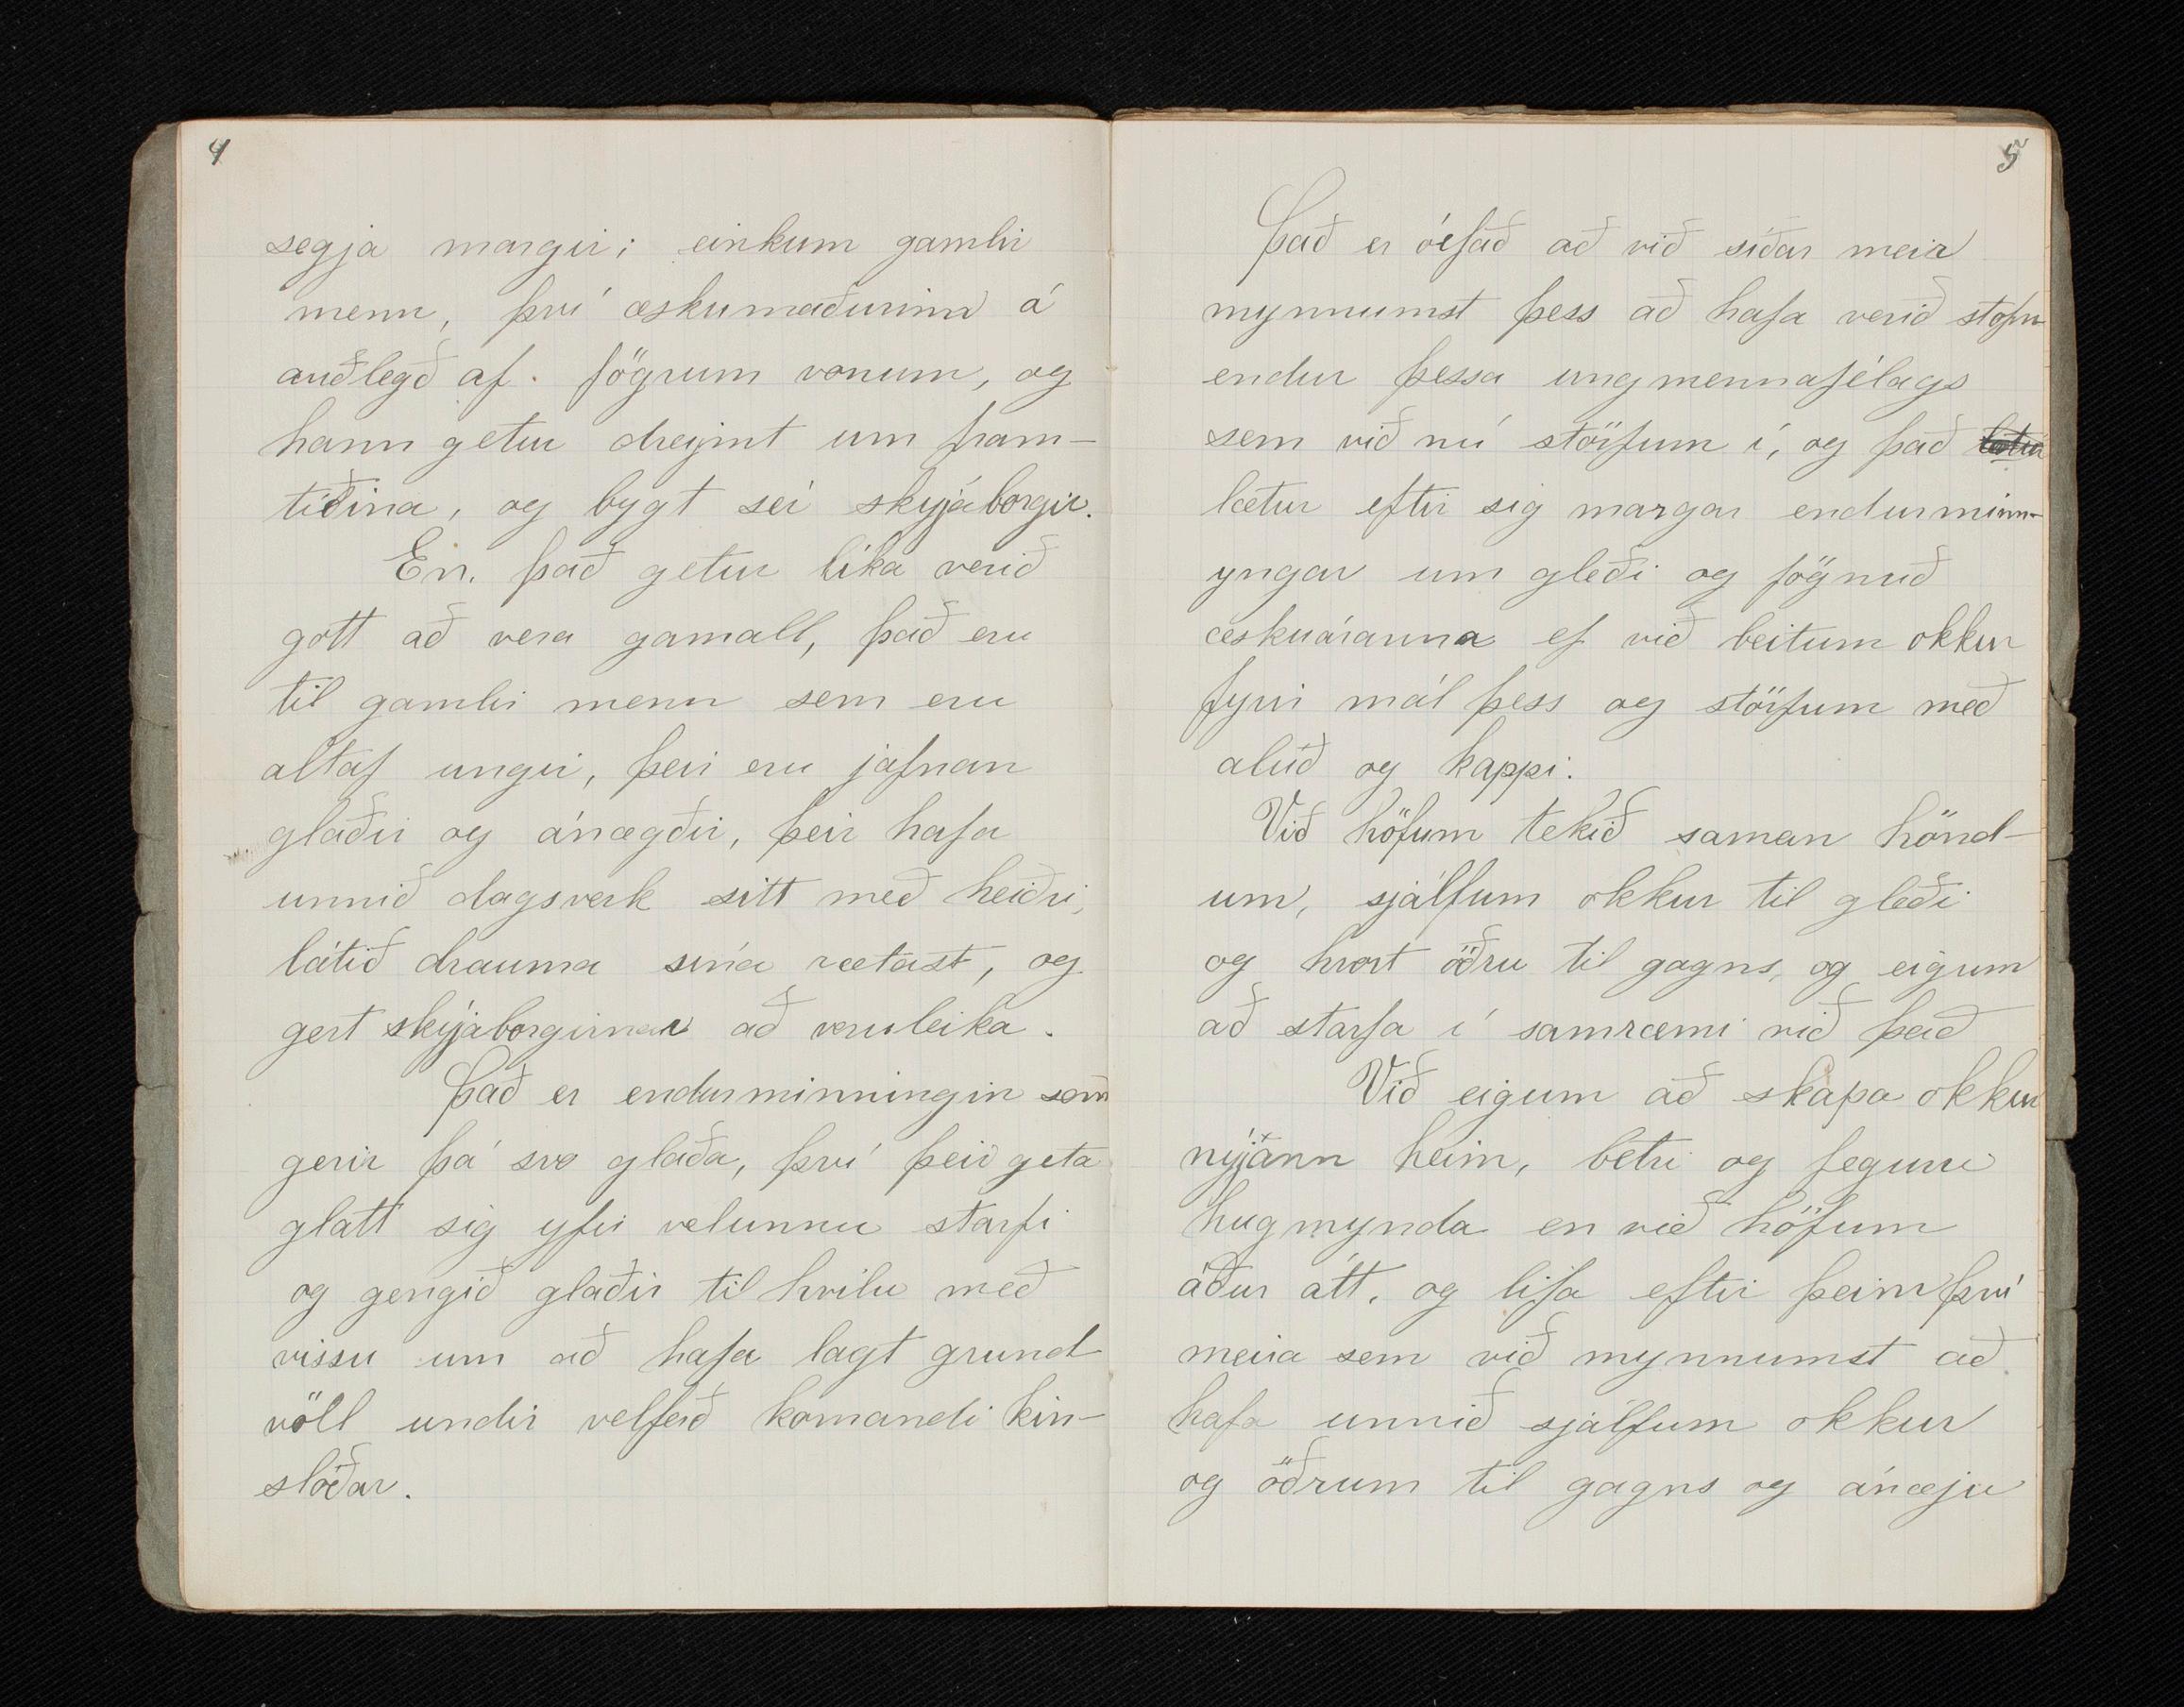 4
segja margir; einkum gamlir
menn, því æskumaðurinn á
auðlegð af. fögrum vonum, og
hann getur dreymt um fram-
tíðina, og bygt sér skyjáborgir.
En. það getur líka verið
gott að vera gamall, það eru
til gamlir menn sem eru
altaf ungir, þeir eru jafnan
glaðir og ánægðir, þeir hafa
unnið dagsverk sitt með heiðri,
látið drauma sína rætast, og
gert skýjaborgirnar að veruleika.
Það er endurminningin sem
gerir þá svo glaða, því þeir geta
glatt sig yfir velunnu starfi
og gengið glaðir til hvílu með
vissu um að hafa lagt grund
völl undir velferð komandi kin-
slóðar.
5
Það er óefað að við síðar meir
mynnumst þess að hafa verið stofn-
endur þessa ungmennafélags
sem við nú störfum í, og það
lætur eftir sig margar endurminn-
yngar um gleði og fögnuð
æskuáranna ef við beitum okkur
fyrir mál þess og störfum með
alúð og kappi.
Við höfum tekið saman hönd-
um, sjálfum okkur til gleði
og hvort öðru til gagns, og eigum
að starfa í samræmi við það
Við eigum að skapa okkur
nýjann heim, betri og fegurri
hugmynda en við höfum
áður átt. og lifa eftir þeim því
meira sem við mynnumst að
hafa unnið sjálfum okkur
og öðrum til gagns og ánæju